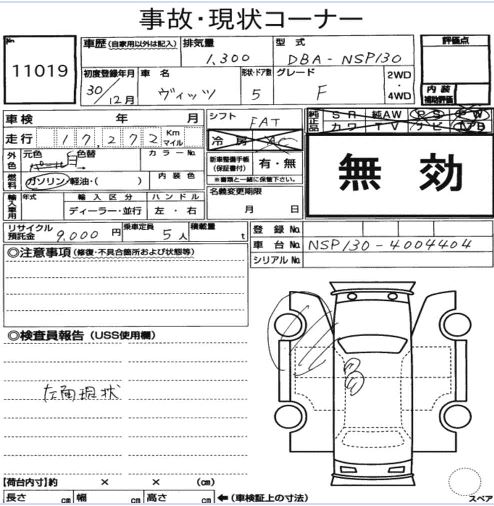 事故・現状コーナー
No. 11019
車歴 (自家用以外は記入) 排気量 1,300 型式 DBA-NSP130 評価点
初度登録年月 30/12月 車名 ヴィッツ 形状・ドア数 5 グレード F 2WD・4WD 内装補助評価
車検 年 月 シフト FAT 純正品 SR 純AW PS PW
走行 17,272 Km マイル 冷房 AC カワ TV ナビ
外色 元色 パール 色替 カラーNo. 新車整備手帳(保証書付) 有・無 ※書類と一緒に保管下さい。 無効
燃料 ガソリン/軽油・( ) 内装色 名義変更期限
輸入車用 年式 輸入区分 ディーラー・並行 ハンドル 左・右 月 日
リサイクル預託金 9,000円 乗車定員 5人 積載量 t 登録No.
車台No. NSP130-4004404
シリアルNo.
◎注意事項 (修復・不具合箇所および状態等)
◎検査員報告 (USS使用欄)
左面現状
【荷台内寸】約 × × (cm)
長さ cm 幅 cm 高さ cm ←(車検証上の寸法)
スペア